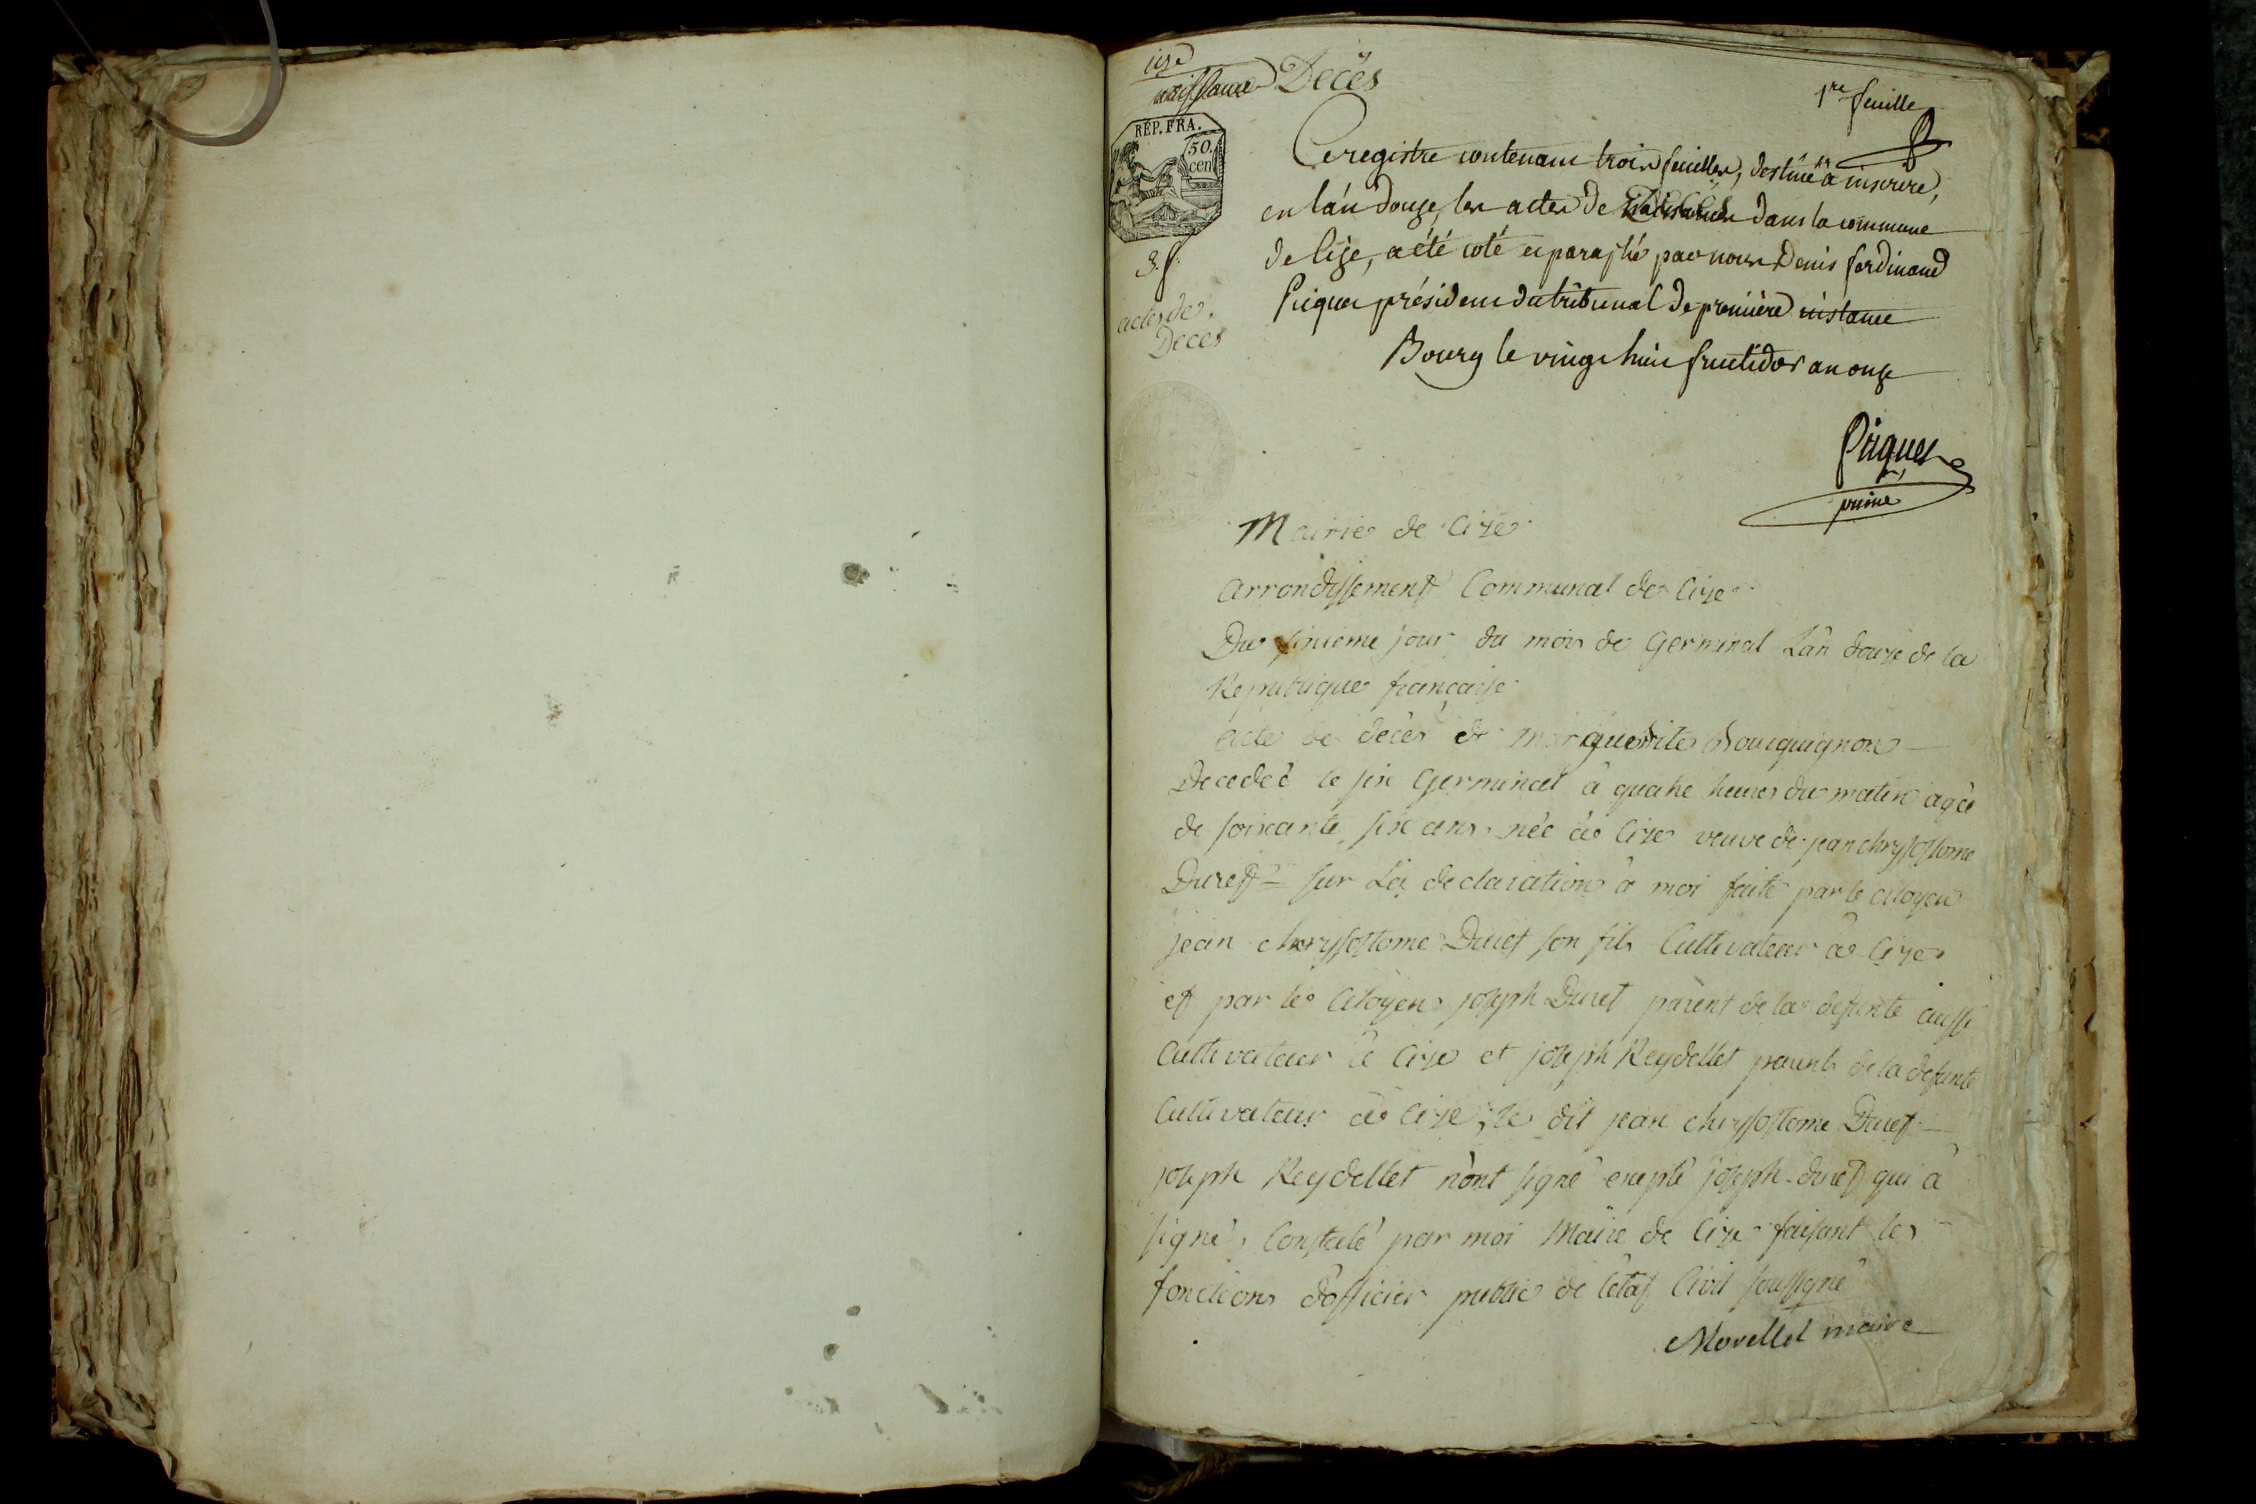 Cize
naissance Décès
1re feuille
REP. FRA.
50.
cen
Ce registre contenant trois feuilles, destiné à inscrire,
en l'an douze, les actes de Décès dans la commune
de Cize, a été coté et paraphé par nous Denis ferdinand
Picquet président du tribunal de première instance
Bourg le vingt huit fructidor an onze
actes de
Décès
Picquet
Mairie de Cize
arrondissement Communal de Cize
Du sixieme jour du mois de Germinal L'an douze de la
Republique française
acte de décès de marguerite Bourguignon
Decedeé le six Germinal à quatre heures du matin ageè
de soixante six ans née à Cize veuve de jean chrysostome
Duret sur La declaration à moi faite par le citoyen
jean chrysostome Duret son fils Cultivateur à Cize
et par le Citoyen joseph Duret parent de la defunte aussi
Cultivateur à Cize et joseph Reydellet parent de la defunte
Cultivateur à Cize, le dit jean chrysostome Duret
joseph Reydellet n'ont signé exepté joseph duret qui à
signé, Constaté par moi Maire de Cize faisant les
fonctions d'officier public de l'état Civil soussigné
Morellet maire